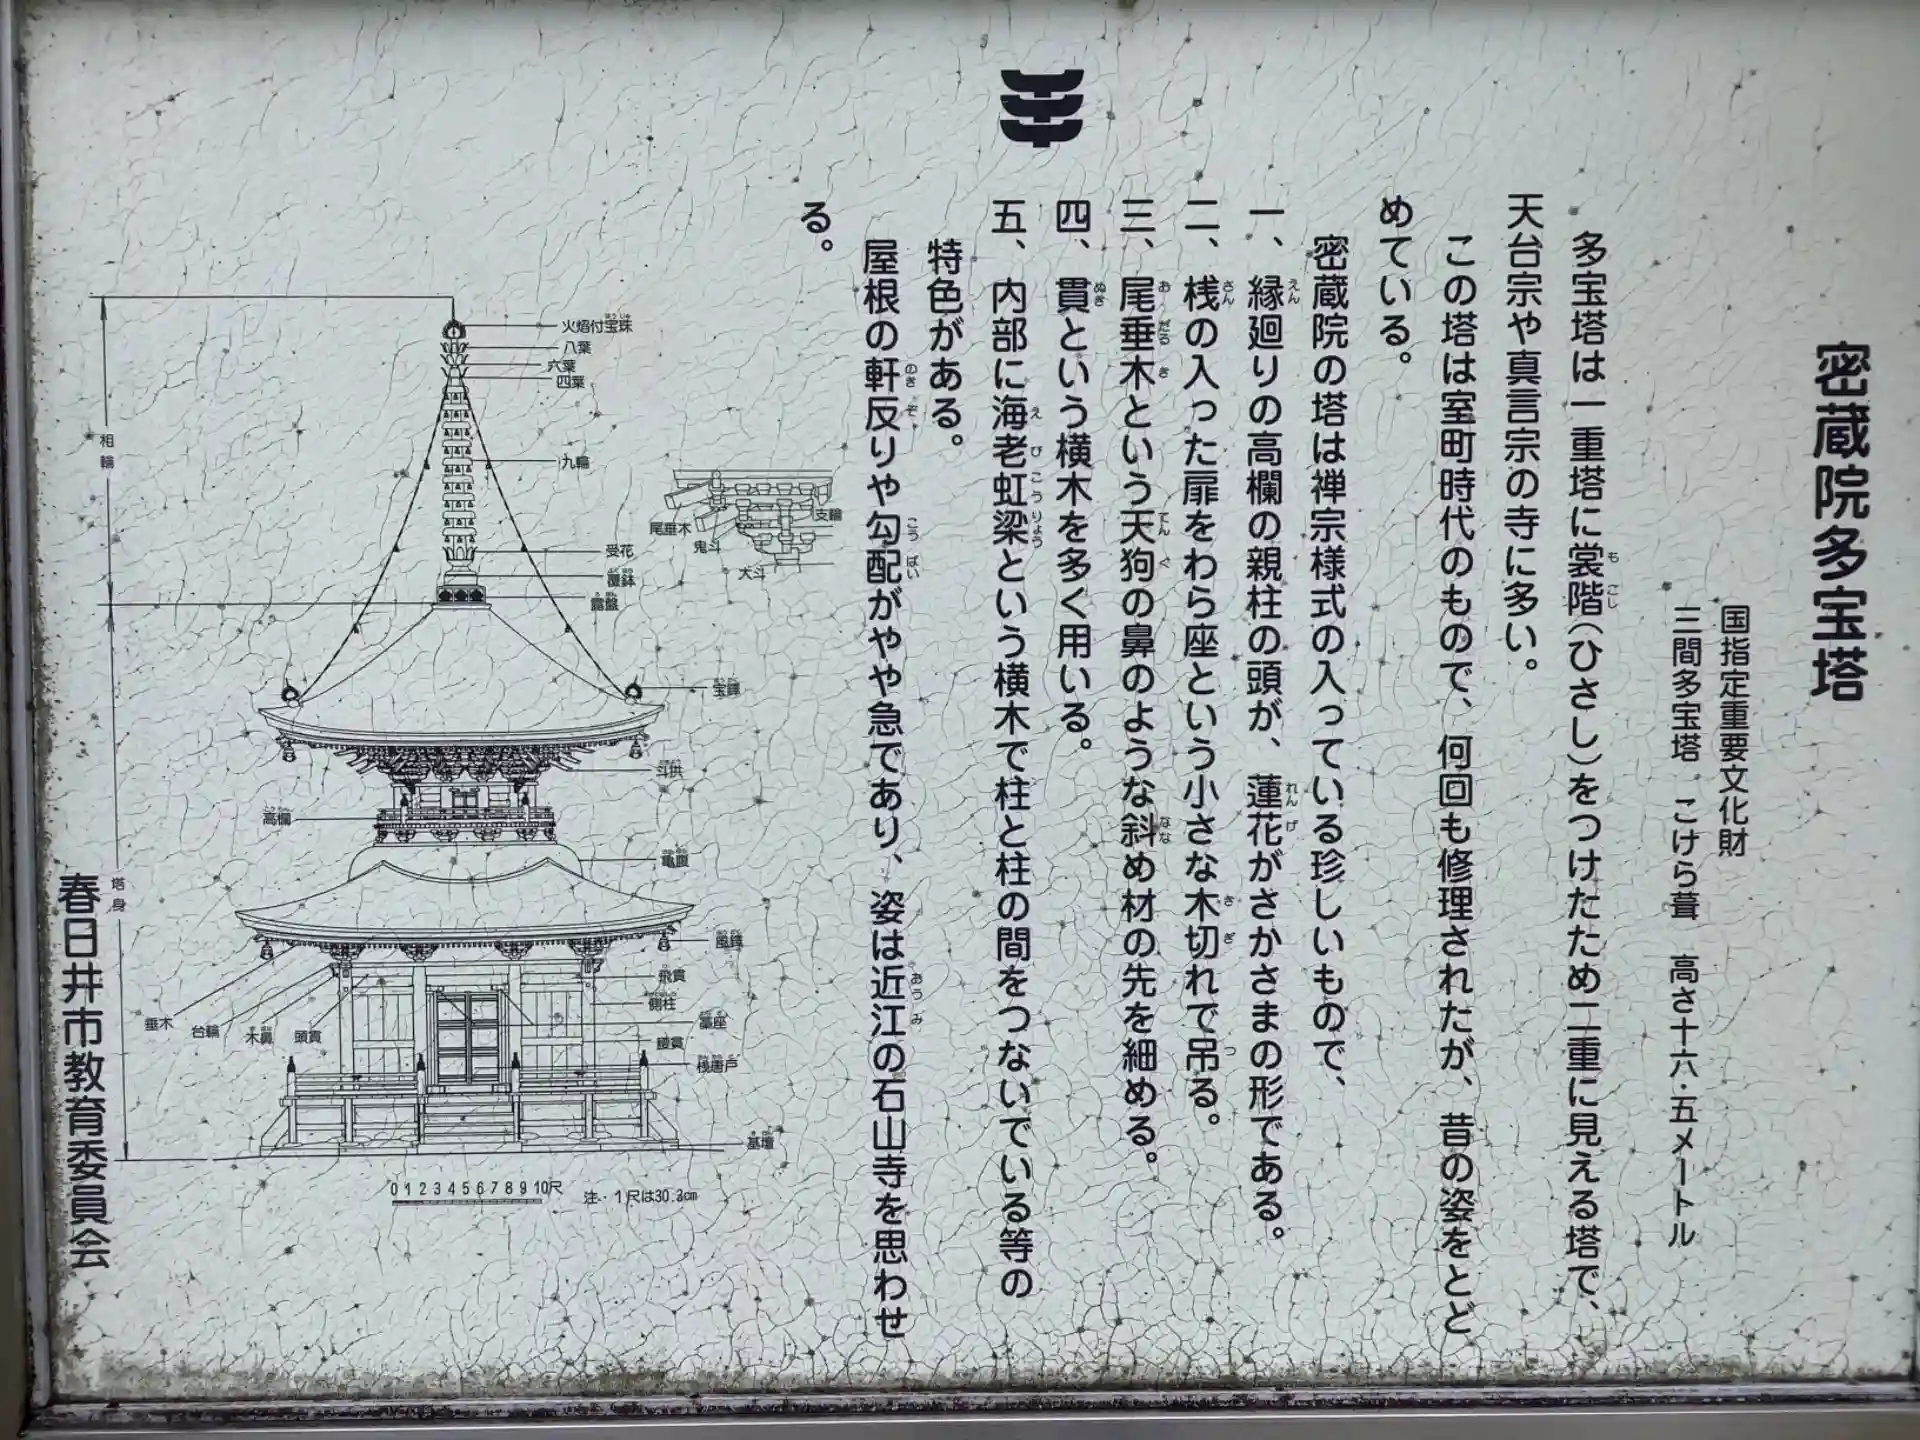 密蔵院多宝塔
国指定重要文化財
三間多宝塔　こけら葺　高さ十六・五メートル
多宝塔は一重塔に裳階（ひさし）をつけたため二重に見える塔で、
天台宗や真言宗の寺に多い。
この塔は室町時代のもので、何回も修理されたが、昔の姿をとど
めている。
密蔵院の塔は禅宗様式の入っている珍しいもので、
一、縁廻りの高欄の親柱の頭が、蓮花がさかさまの形である。
二、桟の入った扉をわら座という小さな木切れで吊る。
三、尾垂木という天狗の鼻のような斜め材の先を細める。
四、貫という横木を多く用いる。
五、内部に海老虹梁という横木で柱と柱の間をつないでいる等の
特色がある。
屋根の軒反りや勾配がやや急であり、姿は近江の石山寺を思わせ
る。
火焔付宝珠
八葉
六葉
四葉
九輪
受花
覆鉢
露盤
相輪
尾垂木
鬼斗
大斗
支輪
宝鐸
斗拱
高欄
亀腹
塔身
風鐸
飛貫
側柱
藁座
腰貫
桟唐戸
垂木
台輪
木鼻
頭貫
基壇
0 1 2 3 4 5 6 7 8 9 10尺
注・1尺は30.3cm
春日井市教育委員会